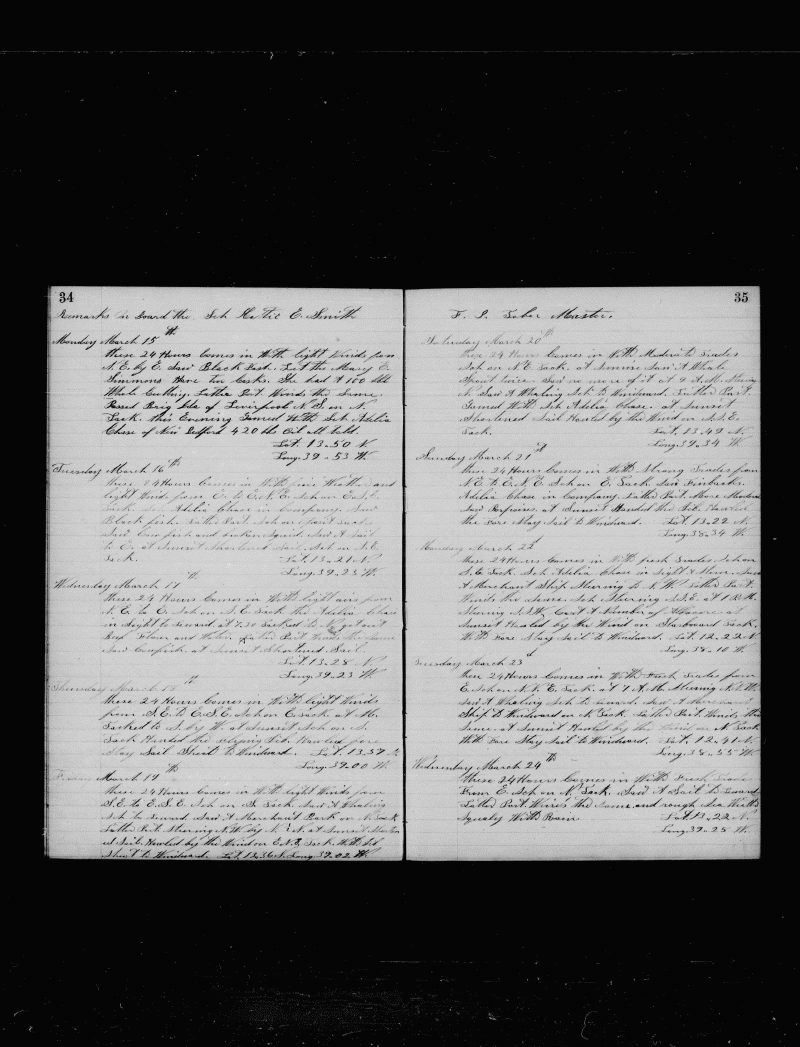 34
Remarks on board the Sch Hattie E. Smith
Monday March 15th
These 24 Hours Comes in With light Winds from
N.E. by E. Saw Black Fish. Let the Mary E.
Simmons Have Two Casks. She had A 100 bbl
Whale Cutting. Latter Part Winds the Same.
Passed Brig of Liverpool N.S. on N.
Tack. this Evening Gamed With Sch Adelia
Chase of New Bedford 420 bbl Oil All told.
Lat. 13-50 N
Long. 39-53 W.
Tuesday March 16th
These 24 Hours Comes in With fine Weather and
light Wind from E. to E.N.E. Sch on E.S.E.
Tack Sch Adelia Chase in Company. Saw
Black fish. Latter Part
Saw Cowfish and Squid. Saw A Sail
to E. at Sunset Shortened Sail. Sch on N.E.
Tack. Lat. 13-21 N
Long. 39-25 W.
Wednesday March 17th
These 24 Hours Comes in With light airs from
N.E. to E. Sch on S.E. Tack the Adelia Chase
in Sight to Leward. at 7.30 Tacked to N. got out
Beef Flour and Latter Part Winds the same
Saw Cowfish. at Sunset Shortened Sail.
Lat. 13-28 N
Long. 39-23 W.
Thursday March 18th
These 24 Hours Comes in With light Winds
from S.E. to E.S.E. Sch on E. Tack. at M.
Tacked to S. by W. at Sunset Sch on N.
Tack Handed the Flying Jib, Hawled fore
Stay Sail Sheet to Windward. Lat. 13-57 N
Long. 39-00 W.
Friday March 19th
These 24 Hours Comes in With light Winds from
S.E. to E.S.E. Sch on S. Tack Saw A Whaling
Sch to Leward. Saw A Merchant Bark on N. Tack
Latter Part Steering N.W. by N. & N. at Sunset
Sail. Hawled by the Wind on E.N.E. Tack. With
Sheet to Windward. Lat. 13-36 N. Long 39-02 W.
35
F. S. Tabor Master.
Saturday March 20th
These 24 Hours Comes in With Moderate Trades
Sch on N.E. Tack. at Sunrise Saw A Whale
Spout twice. Saw no more of it at 9 A.M. Steering
N. Saw A Whaling Sch to Windward. Latter Part.
Gamed With Sch Adelia Chase. at Sunset
Shortened Sail Hawled by the Wind on N.E.
Tack. Lat. 13-49 N.
Long. 39-34 W.
Sunday March 21st
These 24 Hours Comes in With Strong Trades from
N.E. to E.N.E. Sch on E. Tack Saw Finbacks.
Adelia Chase in Company. Latter Part. More Moderate
Saw Porpoises. at Sunset Handed the Jib, Hawled
the Fore Stay Sail to Windward. Lat. 13-22 N.
Long. 38-34 W.
Monday March 22d
These 24 Hours Comes in With fresh Trades. Sch on
S.E. Tack. Sch Adelia Chase in Sight A Stern Saw
A Merchant Ship Steering to N.W. Latter Part.
Winds the Same. Sch Steering S.S.E. at 1 P.M.
Steering N.N.W. Caught A Number of Albacore at
Sunset Hawled by the Wind on Starboard Tack.
With Fore Stay Sail to Windward. Lat. 12-22 N
Long. 38-10 W.
Tuesday March 23d
These 24 Hours Comes in With Fresh Trades from
E. Sch on N.N.E. Tack. at 7 A.M. Steering N.N.W.
Saw A Whaling Sch to Leward. Saw A Merchant
Ship to Windward on N. Tack. Latter Part. Winds the
Same. at Sunset Hawled by the Wind on N. Tack
With Fore Stay Sail to Windward. Lat. 12-41 N
Long. 38-55 W.
Wednesday March 24th
These 24 Hours Comes in With Fresh Trades
From E. Sch on N. Tack. Saw A Sail to Leward
Latter Part Winds the Same. and rough Sea Weather
Squaly With Rain Lat. 13-22 N.
Long. 39-25 W.